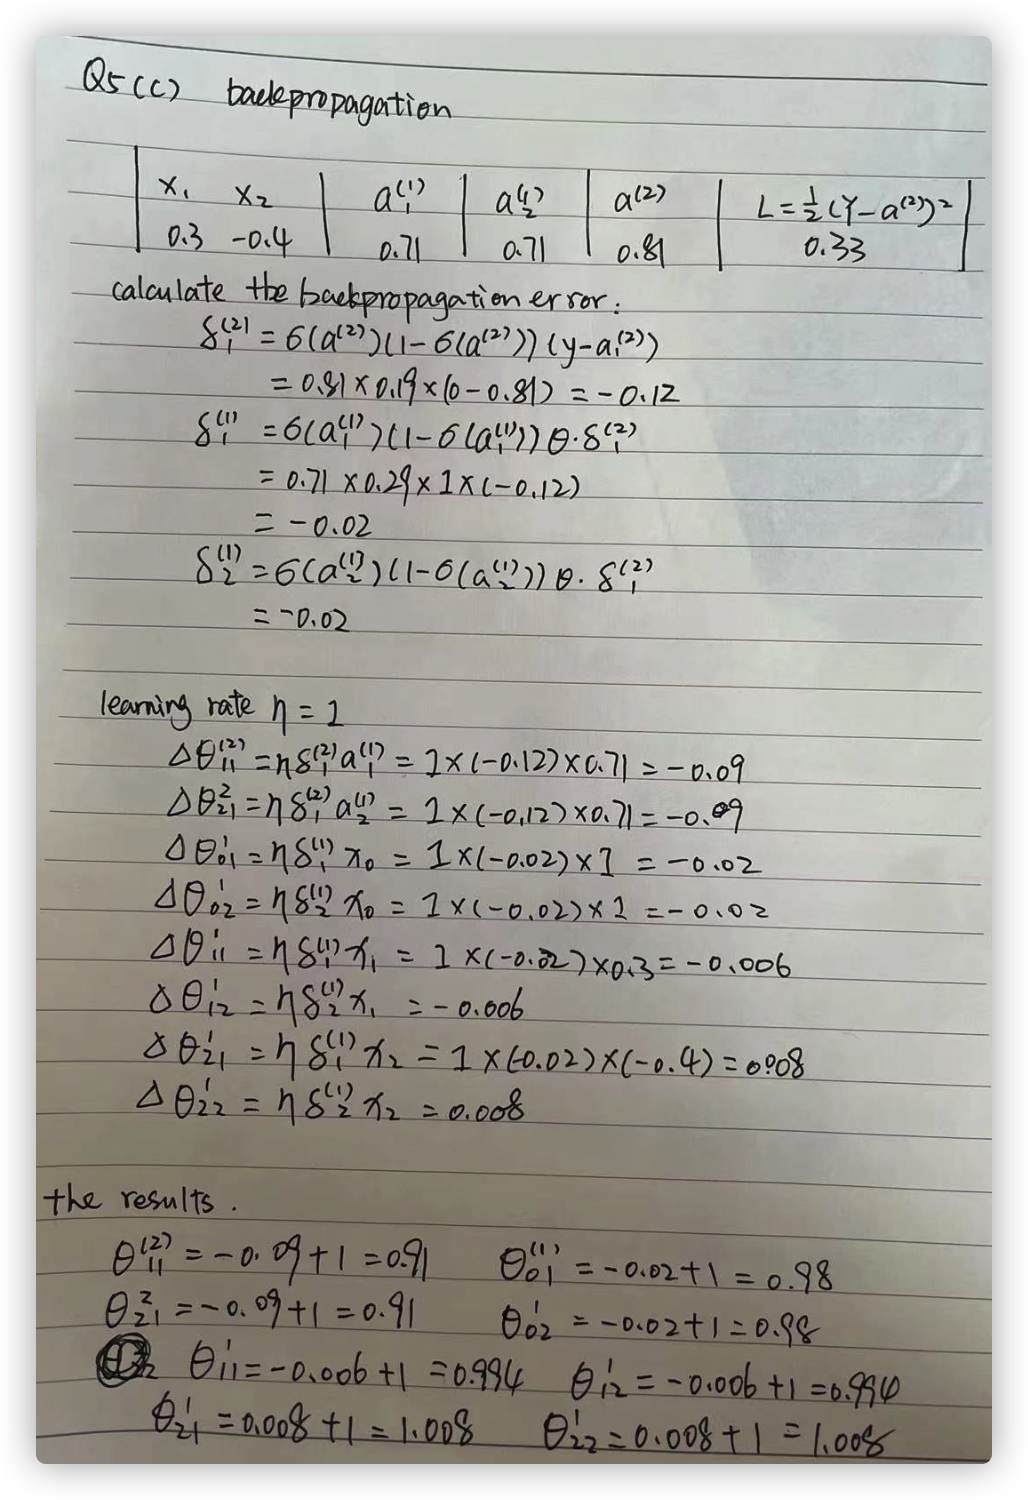 Q5 (C) backpropagation
x₁ x₂ a₁⁽¹⁾ a₂⁽¹⁾ a⁽²⁾ L=½(Y-a⁽²⁾)²
0.3 -0.4 0.71 0.71 0.81 0.33
calculate the backpropagation error:
δ₁⁽²⁾ = σ(a⁽²⁾)(1-σ(a⁽²⁾))(y-a₁⁽²⁾)
= 0.81×0.19×(0-0.81) = -0.12
δ₁⁽¹⁾ = σ(a₁⁽¹⁾)(1-σ(a₁⁽¹⁾))θ·δ₁⁽²⁾
= 0.71×0.29×1×(-0.12)
= -0.02
δ₂⁽¹⁾ = σ(a₂⁽¹⁾)(1-σ(a₂⁽¹⁾))θ·δ₁⁽²⁾
= -0.02
learning rate η = 1
Δθ₁₁⁽²⁾ = ηδ₁⁽²⁾a₁⁽¹⁾ = 1×(-0.12)×0.71 = -0.09
Δθ₂₁² = ηδ₁⁽²⁾a₂⁽¹⁾ = 1×(-0.12)×0.71 = -0.09
Δθ₀₁¹ = ηδ₁⁽¹⁾x₀ = 1×(-0.02)×1 = -0.02
Δθ₀₂¹ = ηδ₂⁽¹⁾x₀ = 1×(-0.02)×1 = -0.02
Δθ₁₁¹ = ηδ₁⁽¹⁾x₁ = 1×(-0.02)×0.3 = -0.006
Δθ₁₂¹ = ηδ₂⁽¹⁾x₁ = -0.006
Δθ₂₁¹ = ηδ₁⁽¹⁾x₂ = 1×(-0.02)×(-0.4) = 0.008
Δθ₂₂¹ = ηδ₂⁽¹⁾x₂ = 0.008
the results.
θ₁₁⁽²⁾ = -0.09+1 = 0.91 θ₀₁⁽¹⁾ = -0.02+1 = 0.98
θ₂₁² = -0.09+1 = 0.91 θ₀₂¹ = -0.02+1 = 0.98
θ₁₁¹ = -0.006+1 = 0.994 θ₁₂¹ = -0.006+1 = 0.994
θ₂₁¹ = 0.008+1 = 1.008 θ₂₂¹ = 0.008+1 = 1.008